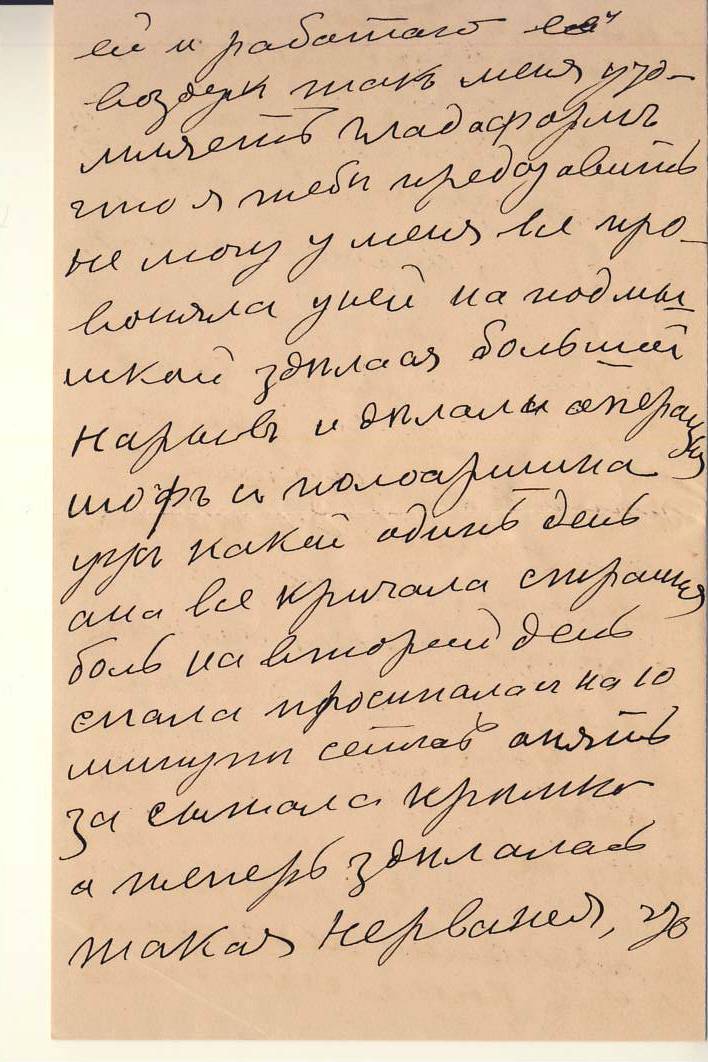 ей и работаю ей
воздухъ такъ меня уду-
мляетъ гладаформъ
что я тебѣ предозавить
не могу у меня все про-
воняла у ней на подмы
шкой здѣлася большей
нарывъ и дѣлалы операцыю
шофъ полоаршина
какей одинъ день
ана все кричала страшня
боль на вторей день
спала просипалася на 10
минуты опять
за сыпала крѣпко
а теперь здѣлалась
такая нервеная, что